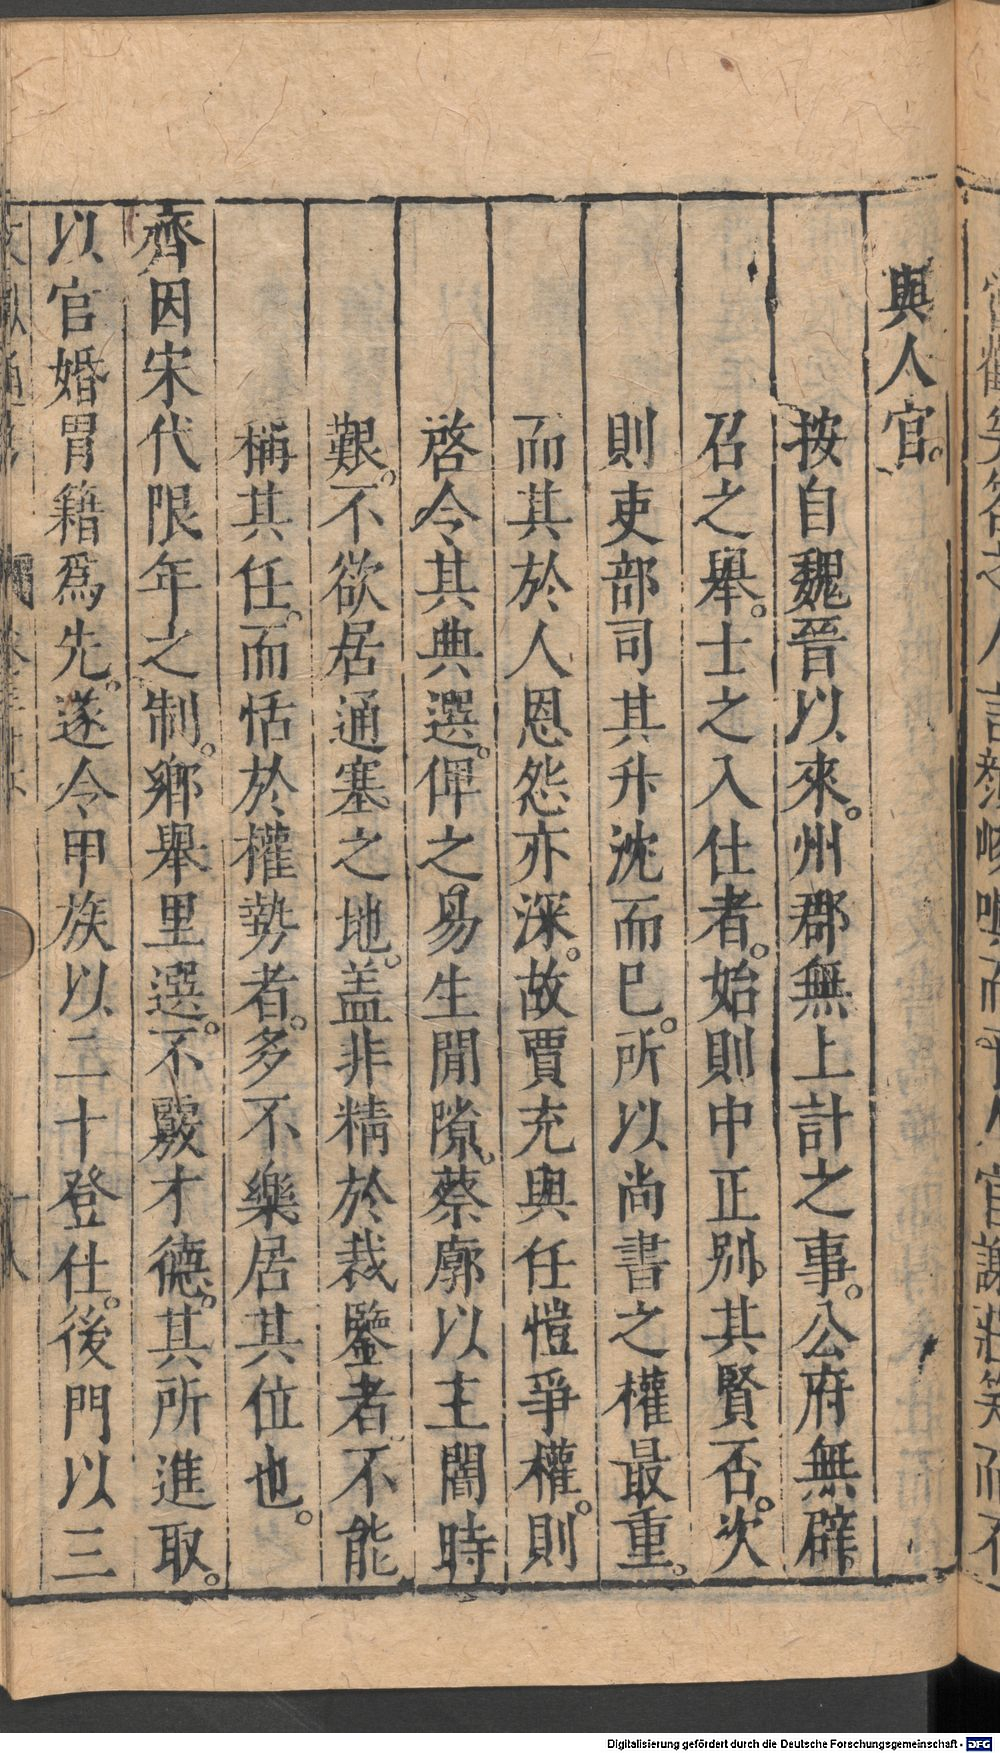 與人官。
按自魏晉以來。州郡無上計之事。公府無辟
召之舉。士之入仕者。始則中正別其賢否。次
則吏部司其升沈而已。所以尚書之權最重。
而其於人恩怨亦深。故賈充與任愷爭權。則
啓令其典選。俾之易生閒隙。蔡廓以主闇時
艱。不欲居通塞之地。盖非精於裁鑒者。不能
稱其任。而恬於權勢者。多不樂居其位也。
齊因宋代限年之制。鄉舉里選。不覈才德。其所進取。
以官婚胄籍爲先。遂令甲族以二十登仕。後門以三
Digitalisierung gefördert durch die Deutsche Forschungsgemeinschaft - DFG